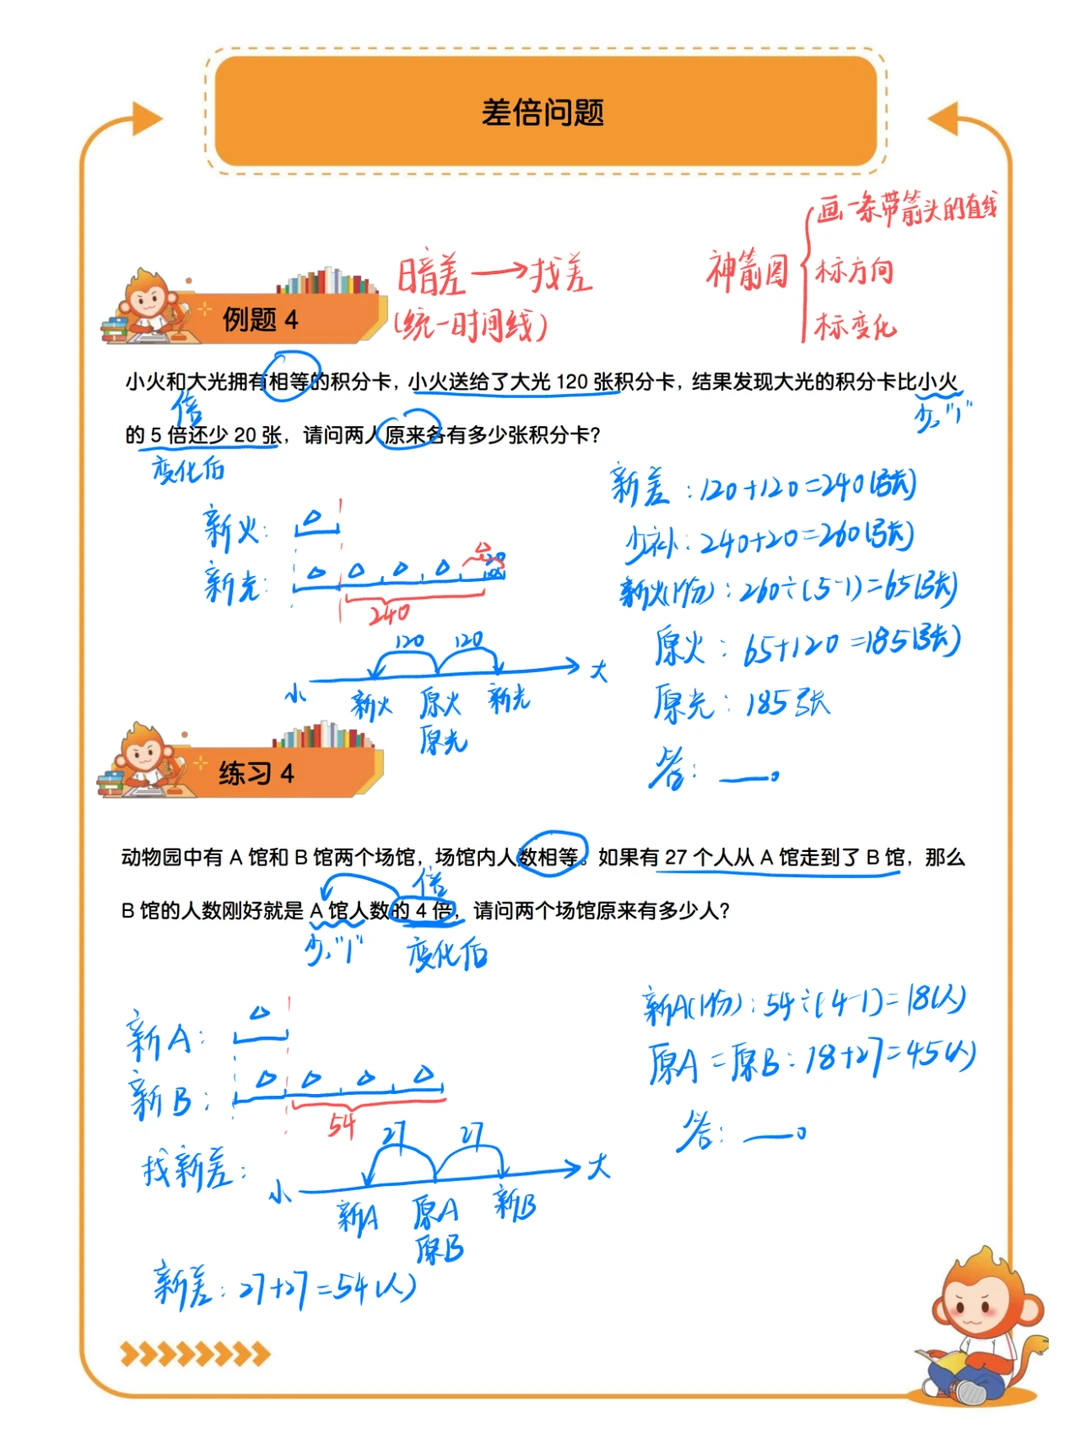 差倍问题
画一条带箭头的直线
暗差→找差
神箭图
标方向
(统一时间线)
标变化
例题 4
小火和大光拥有相等的积分卡，小火送给了大光 120 张积分卡，结果发现大光的积分卡比小火
倍
少,"1"
的 5 倍还少 20 张，请问两人原来各有多少张积分卡?
变化后
新差：120+120=240(张)
新火：
少补：240+20=260(张)
新光：
20
新火(1份)：260÷(5-1)=65(张)
240
原火：65+120=185(张)
120 120
小 大
新火 原火 新光
原光
原光：185张
答：——。
练习 4
动物园中有 A 馆和 B 馆两个场馆，场馆内人数相等。如果有 27 个人从 A 馆走到了 B 馆，那么
倍
B 馆的人数刚好就是 A 馆人数的 4 倍，请问两个场馆原来有多少人?
少,"1"
变化后
新A(1份)：54÷(4-1)=18(人)
新A：
原A=原B：18+27=45(人)
新B：
54
答：——。
找新差：
27 27
小 大
新A 原A 新B
原B
新差：27+27=54(人)